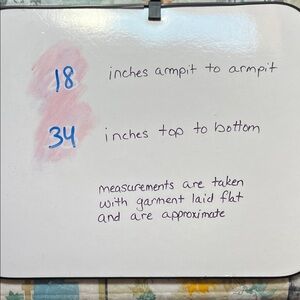 18 inches armpit to armpit
34 inches top to bottom
measurements are taken
with garment laid flat
and are approximate